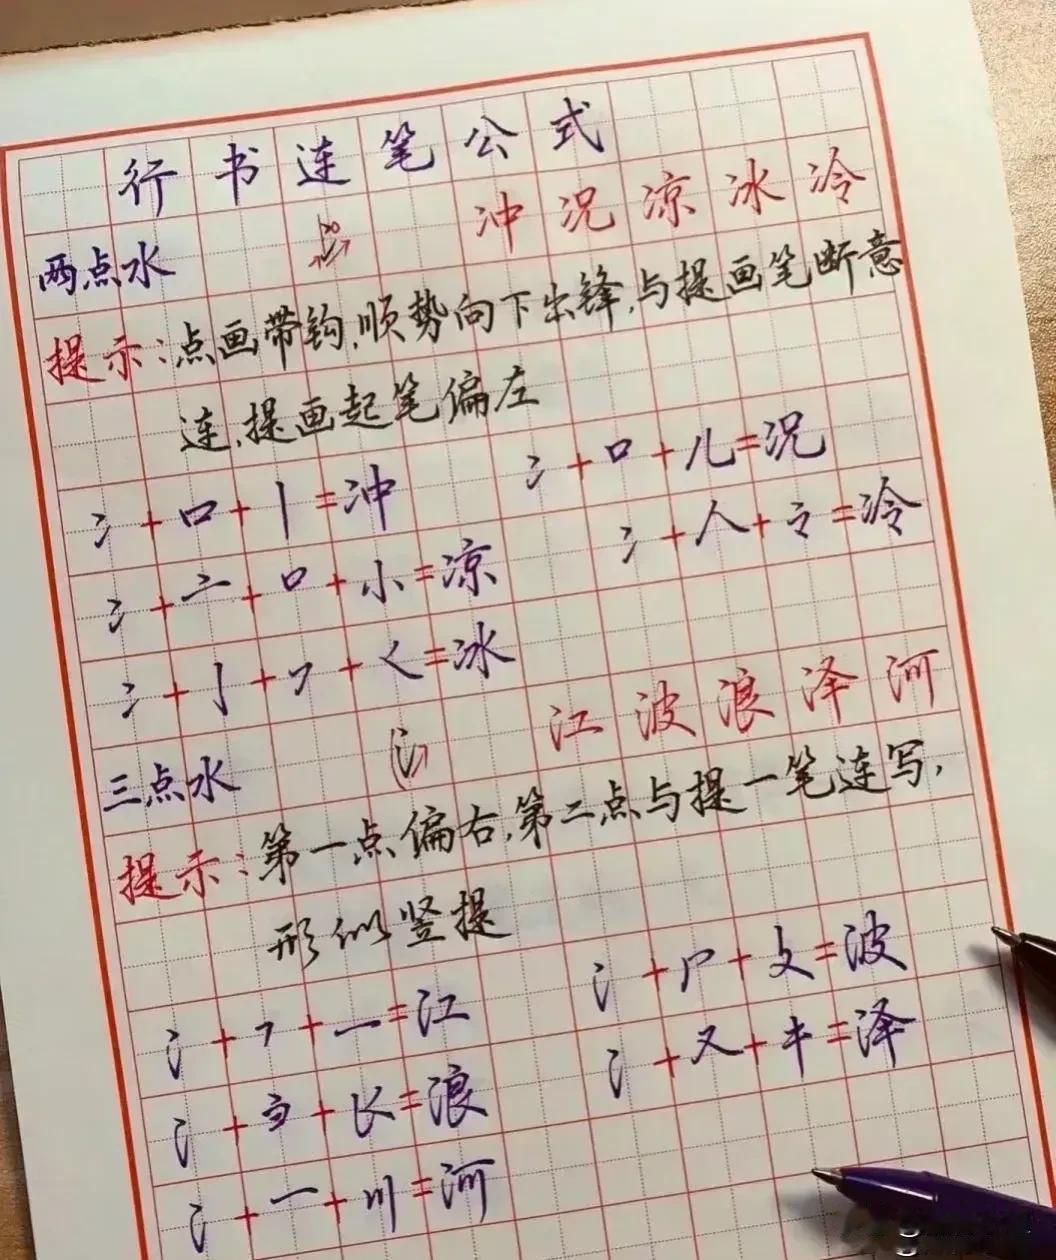 行书连笔公式
冲况凉冰冷
两点水
提示:点画带钩,顺势向下出锋,与提画笔断意
连,提画起笔偏左
冫+口+丨=冲
冫+口+儿=况
冫+亠+口+小=凉
冫+人+令=冷
冫+亅+フ+く=冰
江波浪泽河
三点水
提示:第一点偏右,第二点与提一笔连写,
形似竖提
氵+一=江
氵+攵=波
氵+又+キ=泽
氵=浪
氵=河